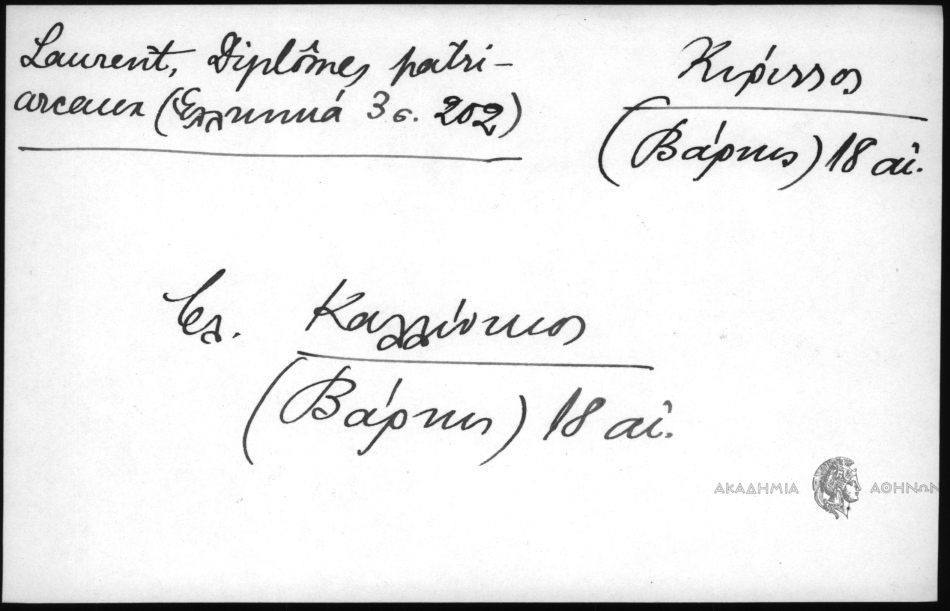 Laurent, Diplômes patri-
arcaux (Ἑλληνικά 3 σ. 202)
Κύριλλος
(Βάρνης) 18 αἰ.
βλ. Καλλίνικος
(Βάρνης) 18 αἰ.
ΑΚΑΔΗΜΙΑ ΑΘΗΝΩΝ